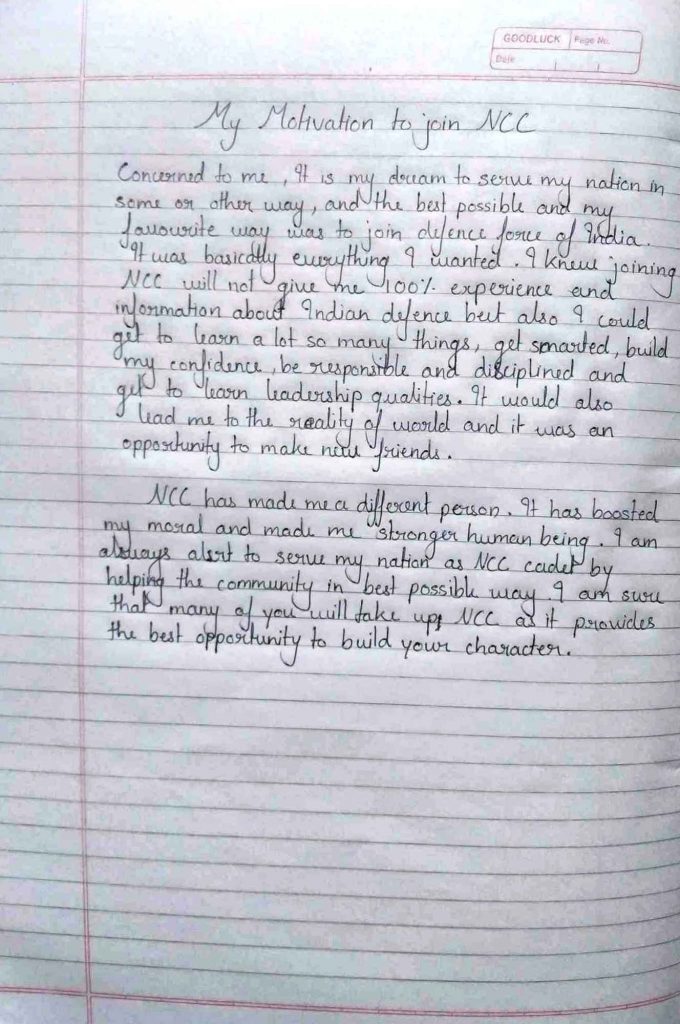 GOODLUCK Page No.
Date
My Motivation to join NCC
Concerned to me, It is my dream to serve my nation in
some or other way, and the best possible and my
favourite way was to join defence force of India.
It was basically everything I wanted. I knew joining
NCC will not give me 100% experience and
information about Indian defence but also I could
get to learn a lot so many things, get smarted, build
my confidence, be responsible and disciplined and
get to learn leadership qualities. It would also
lead me to the reality of world and it was an
opportunity to make new friends.
NCC has made me a different person. It has boosted
my moral and made me stronger human being. I am
always alert to serve my nation as NCC cadet by
helping the community in best possible way. I am sure
that many of you will take up NCC as it provides
the best opportunity to build your character.